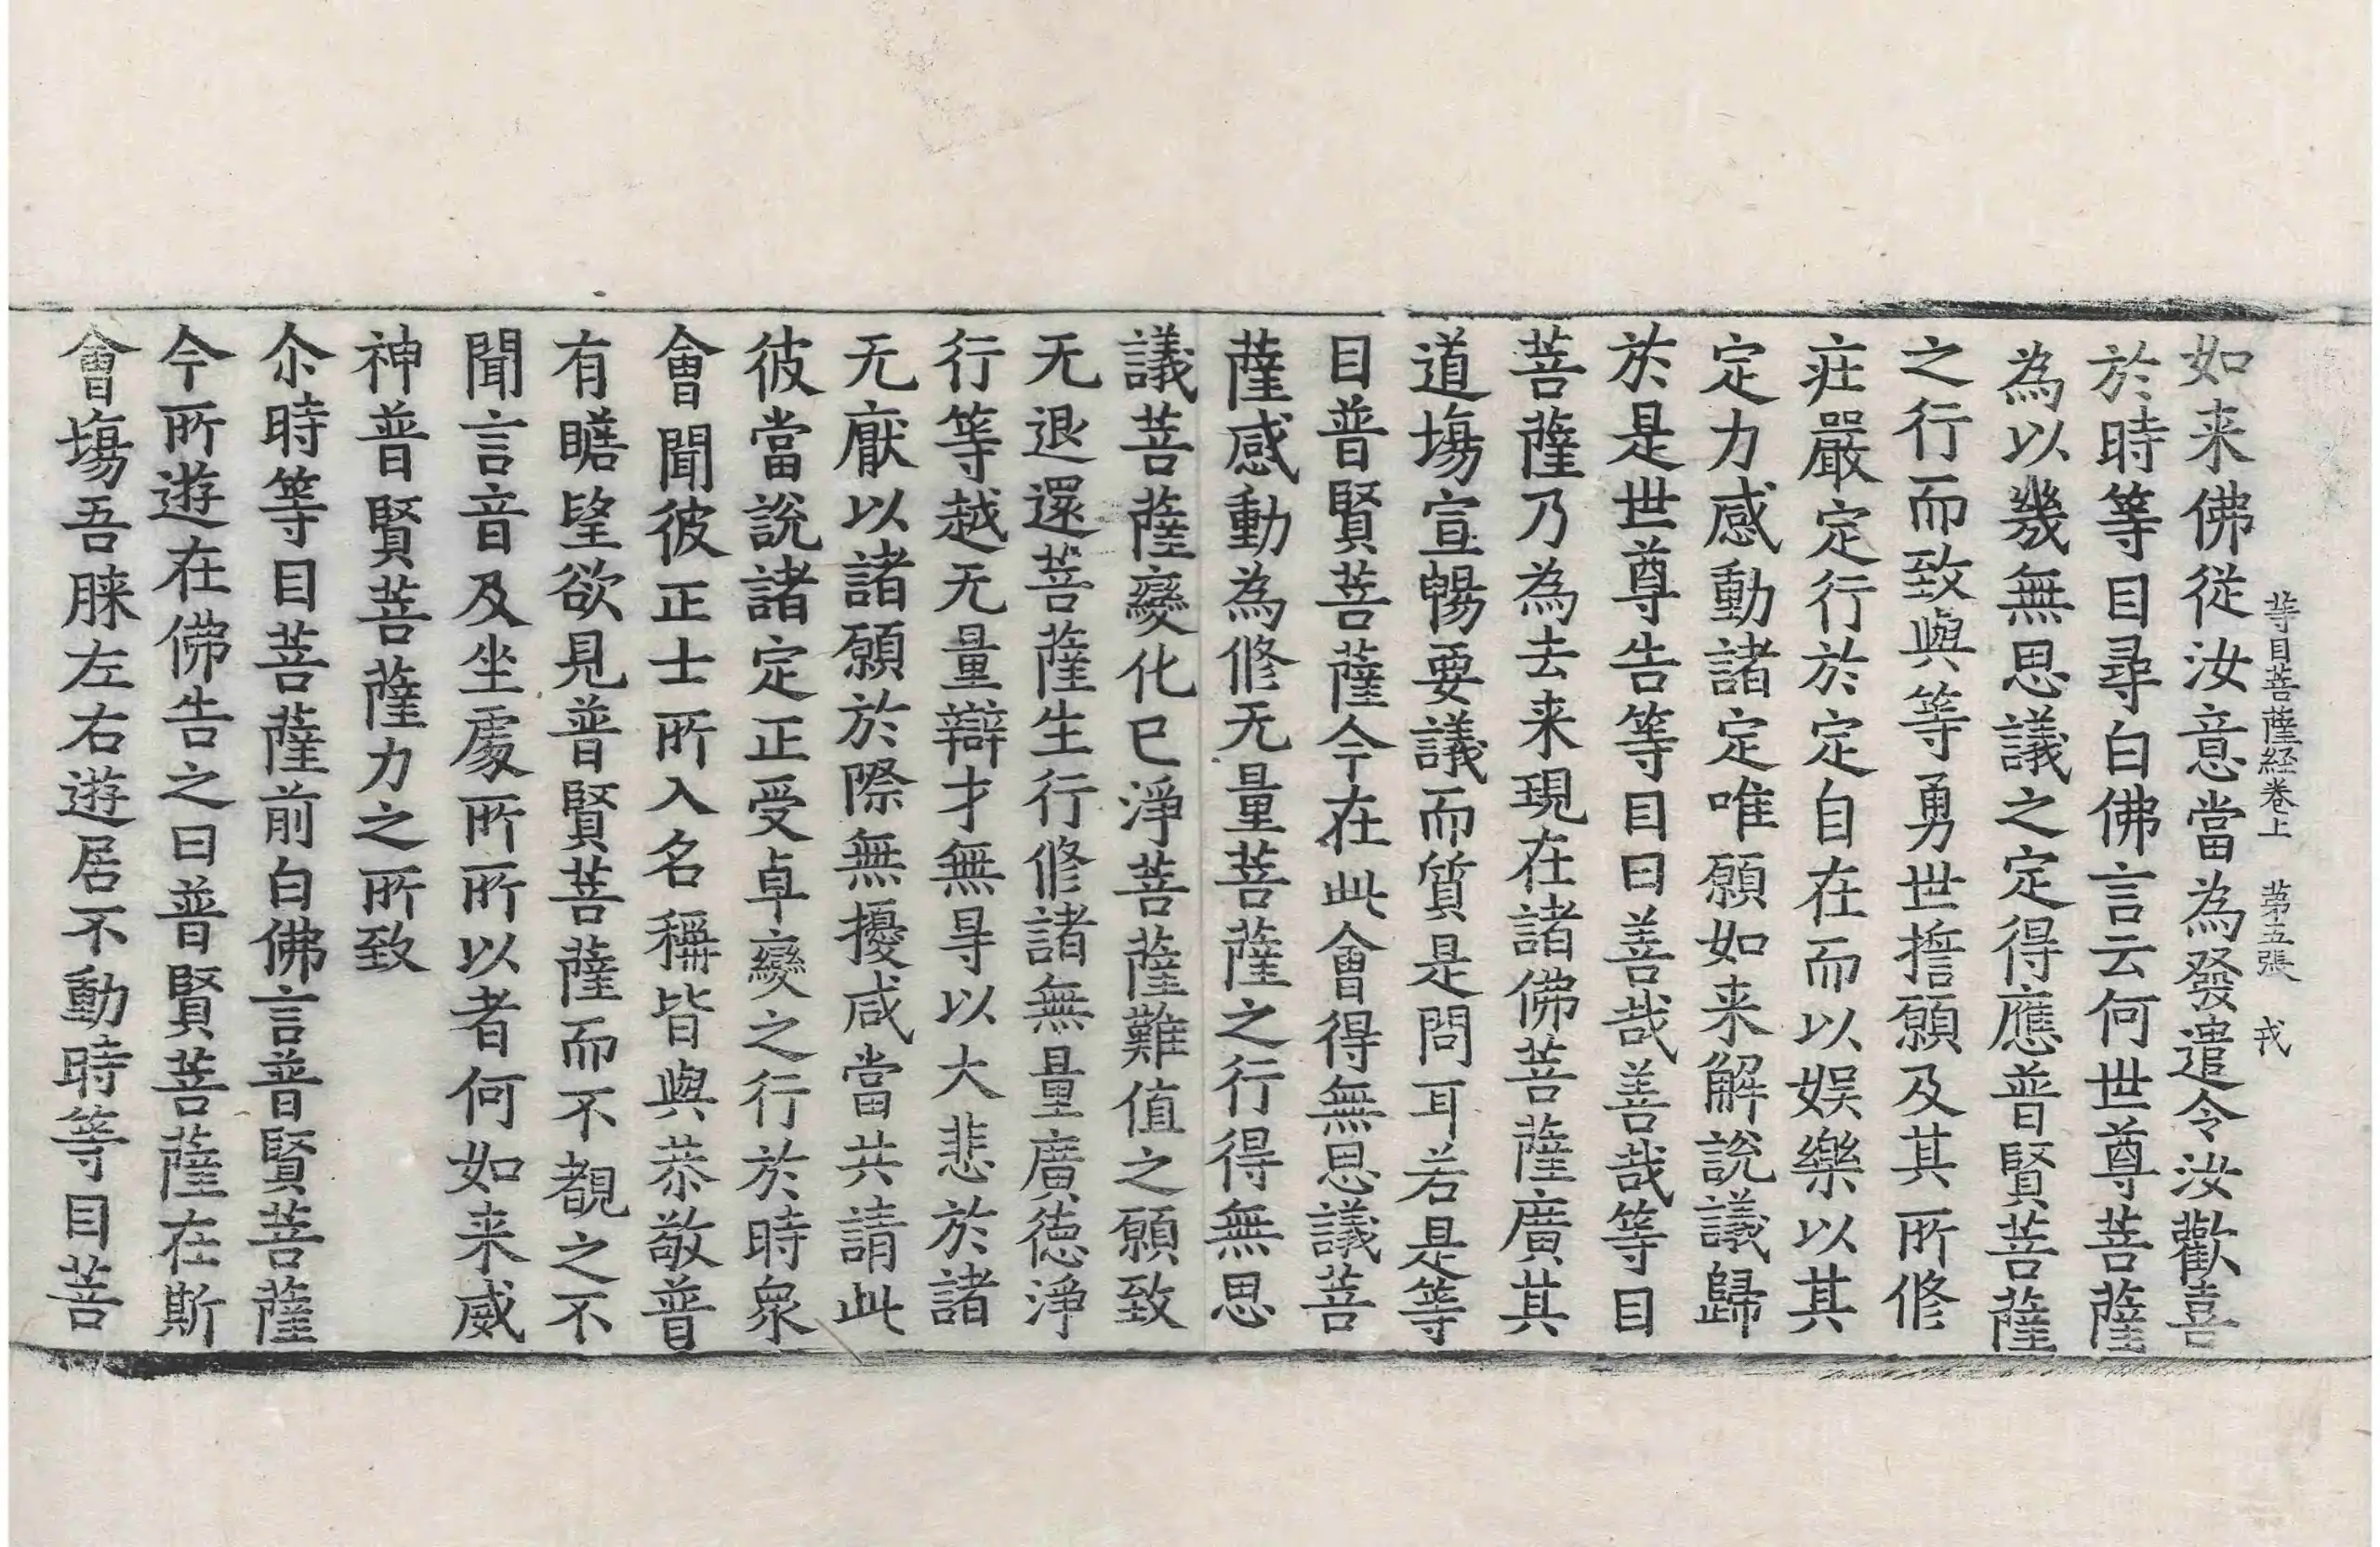 等目菩薩経卷上　第五張　戎
如来佛從汝意當為發遣令汝歡喜
於時等目尋白佛言云何世尊菩薩
為以幾無思議之定得應普賢菩薩
之行而致與等勇世擔願及其所修
莊嚴定行於定自在而以娱樂以其
定力感動諸定唯願如来解說議歸
於是世尊告等目曰善哉善哉等目
菩薩乃為去来現在諸佛菩薩廣其
道塲宣暢要議而質是問耳若是等
目普賢菩薩今在此會得無思議菩
薩感動為修无量菩薩之行得無思
議菩薩變化已淨菩薩難值之願致
无退還菩薩生行修諸無量廣德淨
行等越无量辯才無㝵以大悲於諸
无厭以諸願於際無擾咸當共請此
彼當說諸定正受卓變之行於時衆
會聞彼正士所入名稱皆與恭敬普
有瞻望欲見普賢菩薩而不覩之不
聞言音及坐處所所以者何如来威
神普賢菩薩力之所致
尒時等目菩薩前白佛言普賢菩薩
今所遊在佛告之曰普賢菩薩在斯
會塲吾睞左右遊居不動時等目菩